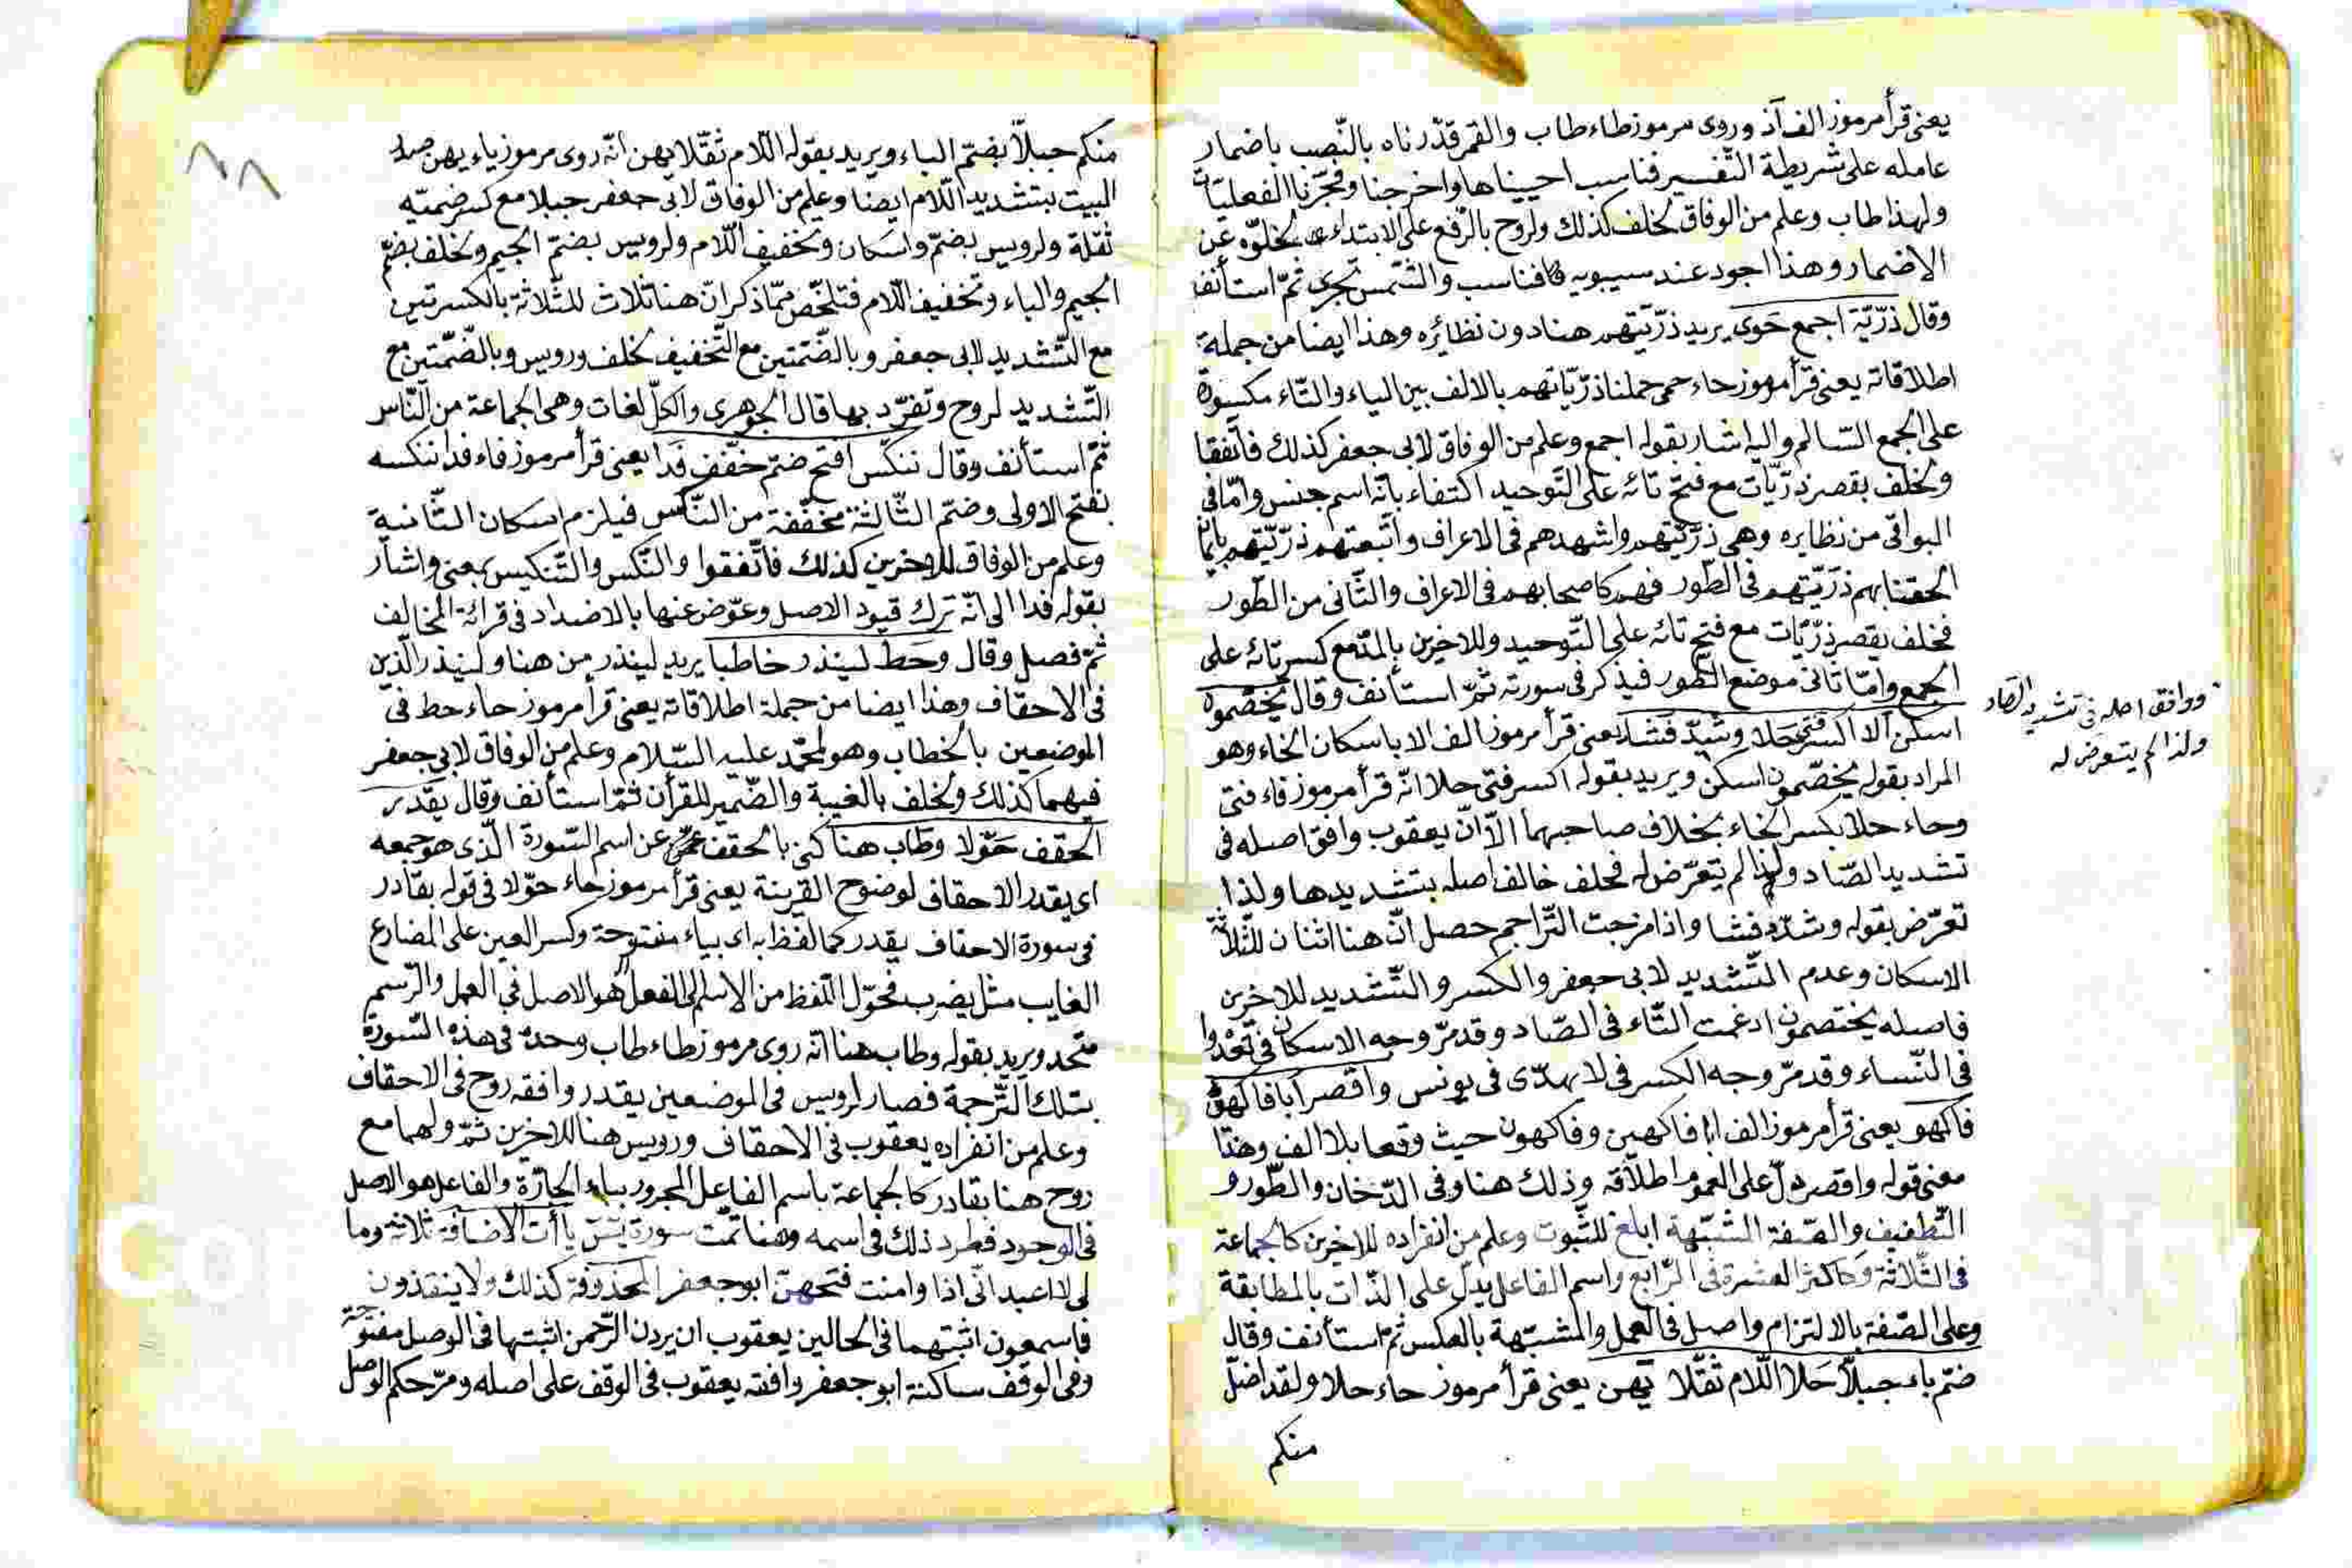 يعنى قرأ مرموز الف آذ وروى مرموز طاء طاب والقمر قدّرناه بالنّصب باضمار
عامله على شريطة التّفسير فناسب احييناها واخرجنا وفجّرنا الفعليّات
ولهذا طاب وعلم من الوفاق لخلف كذلك ولروح بالرّفع على الابتداء لخلوّه عن
الاضمار وهذا اجود عند سيبويه فناسب والشّمس تجرى ثمّ استأنف
وقال ذرّيّة اجمع حَوى يريد ذرّيّتهم هنا دون نظائره وهذا ايضا من جملة
اطلاقاته يعنى قرأ مرموز حاء حمى حملنا ذرّيّاتهم بالالف بين الياء والتّاء مكسورة
على الجمع السّالم واليه اشار بقوله اجمع وعلم من الوفاق لابى جعفر كذلك فاتّفقا
ولخلف بقصر ذرّيّات مع فتح تائه على التّوحيد اكتفاء بانّه اسم جنس وامّا فى
البواقى من نظايره وهى ذرّيّتهم واشهدهم فى الاعراف واتّبعتهم ذرّيّتهم بايمان
الحقنا بهم ذرّيّتهم فى الطّور فهم كاصحابهم فى الاعراف والثّانى من الطّور
فخلف بقصر ذرّيّات مع فتح تائه على التّوحيد وللاخرين بالمدّ مع كسر تائه على
الجمع وامّا ثانى موضع الطّور فيذكر فى سورته ثمّ استأنف وقال يخصّموه
اسكن الا اكسر فتى حلا وشدّد فشا يعنى قرأ مرموز الف الا باسكان الخاء وهو
المراد بقوله يخصّمون اسكن ويريد بقوله اكسر فتى حلا انّه قرأ مرموز فاء فتى
وحاء حلا بكسر الخاء بخلاف صاحبهما الّا انّ يعقوب وافق اصله فى
تشديد الصّاد ولذا لم يتعرّض له فخلف خالف اصله بتشديدها ولذا
تعرّض بقوله وشدّد فشا واذا مزجت التّراجم حصل انّ هنا اثنان للثّلاثة
الاسكان وعدم التّشديد لابى جعفر والكسر والتّشديد للاخرين
فاصله يختصمون ادغمت التّاء فى الصّاد وقد مرّ وجه الاسكان فى تعْدوا
فى النّساء وقد مرّ وجه الكسر فى لا يهدّى فى يونس واقصر ابا فاكهين
فاكهو يعنى قرأ مرموز الف ابا فاكهين وفاكهون حيث وقعا بلا الف وهذا
معنى قوله واقصر دلّ على العموم اطلاقه وذلك هنا وفى الدّخان والطّور و
التّطفيف والصّفة المشبّهة ابلغ للثّبوت وعلم من انفراده للاخرين كالجماعة
فى الثّلاثة وكاكثر العشرة فى الرّابع واسم الفاعل يدلّ على الذّات بالمطابقة
وعلى الصّفة بالالتزام واصل فى العمل والمشبّهة بالعكس ثمّ استأنف وقال
ضمّ باء جبلاّ حَلا اللّام ثقّلا يَهن يعنى قرأ مرموز حاء حلا ولقد اضلّ
منكم
ووافق اصله فى تشديد الصّاد
ولذا لم يتعرض له
٨٨
منكم جبلاّ بضمّ الباء ويريد بقوله اللّام ثقّلا يهن انّه روى مرموز ياء يهن
البيت بتشديد اللّام ايضا وعلم من الوفاق لابى جعفر جبلا مع كسر ضمّيه
ثقّله ولرويس بضمّ واسكان وتخفيف اللّام ولرويس بضمّ الجيم ولخلف بضمّ
الجيم والباء وتخفيف اللّام فتلخّص ممّا ذكر انّ هنا ثلاث للثّلاثة بالكسرتين
مع التّشديد لابى جعفر وبالضّمّتين مع التّخفيف لخلف ورويس وبالضّمّتين مع
التّشديد لروح وتفرّد بها قال الجوهرى والكلّ لغات وهى الجماعة من النّاس
ثمّ استأنف وقال ننكّس افتح ضمّ خفّف فَدا يعنى قرأ مرموز فاء فدا ننكسه
بفتح الاولى وضمّ الثّالثة مخفّفة من النّكس فيلزم اسكان الثّانية
وعلم من الوفاق للاخرين كذلك فاتّفقوا والنّكس والتّنكيس بمعنى واشار
بقوله فدا الى انّه ترك قيود الاصل وعوّض عنها بالاضداد فى قرائة المخالف
ثمّ فصل وقال وحَط لينذر خاطبا يريد لينذر من هنا ولينذر الّذين
فى الاحقاف وهذا ايضا من جملة اطلاقاته يعنى قرأ مرموز حاء حط فى
الموضعين بالخطاب وهو لمحمّد عليه السّلام وعلم من الوفاق لابى جعفر
فيهما كذلك ولخلف بالغيبة والضّمير للقرأن ثمّ استأنف وقال يقدر
الحقف حَوّلا وطاب هنا كنى بالحقف عن اسم السّورة الّذى هو جمعه
اى يقدر الاحقاف لوضوح القرينة يعنى قرأ مرموز حاء حوّلا فى قوله بقادر
فى سورة الاحقاف يقدر كما لفظ به اى بياء مفتوحة وكسر العين على المضارع
الغايب مثل يضرب فحوّل اللّفظ من الاسم الى الفعل هو الاصل فى العمل والرّسم
متّحد ويريد بقوله وطاب هنا انّه روى مرموز طاء طاب وحده فى هذه السّورة
بتلك التّرجمة فصار لرويس فى الموضعين يقدر وافقه روح فى الاحقاف
وعلم من انفراده يعقوب فى الاحقاف ورويس هنا للاخرين ثمّ ولهما مع
روح هنا بقادر كالجماعة باسم الفاعل المجرور بباء الجارّة والفاعل هو الاصل
فى الوجود فطرد ذلك فى اسمه وهنا تمّت سورة يسَ ياأت الاضافة ثلاثة وما
لى لا اعبد انّى اذا وامنت فتحهنّ ابو جعفر المحذوفة كذلك ولا ينقذون
فاسمعون اثبتهما فى الحالين يعقوب ان يردن الرّحمن اثبتها فى الوصل مفتوحة
وفى الوقف ساكنة ابو جعفر وافقه يعقوب فى الوقف على اصله ومرّ حكم الوصل